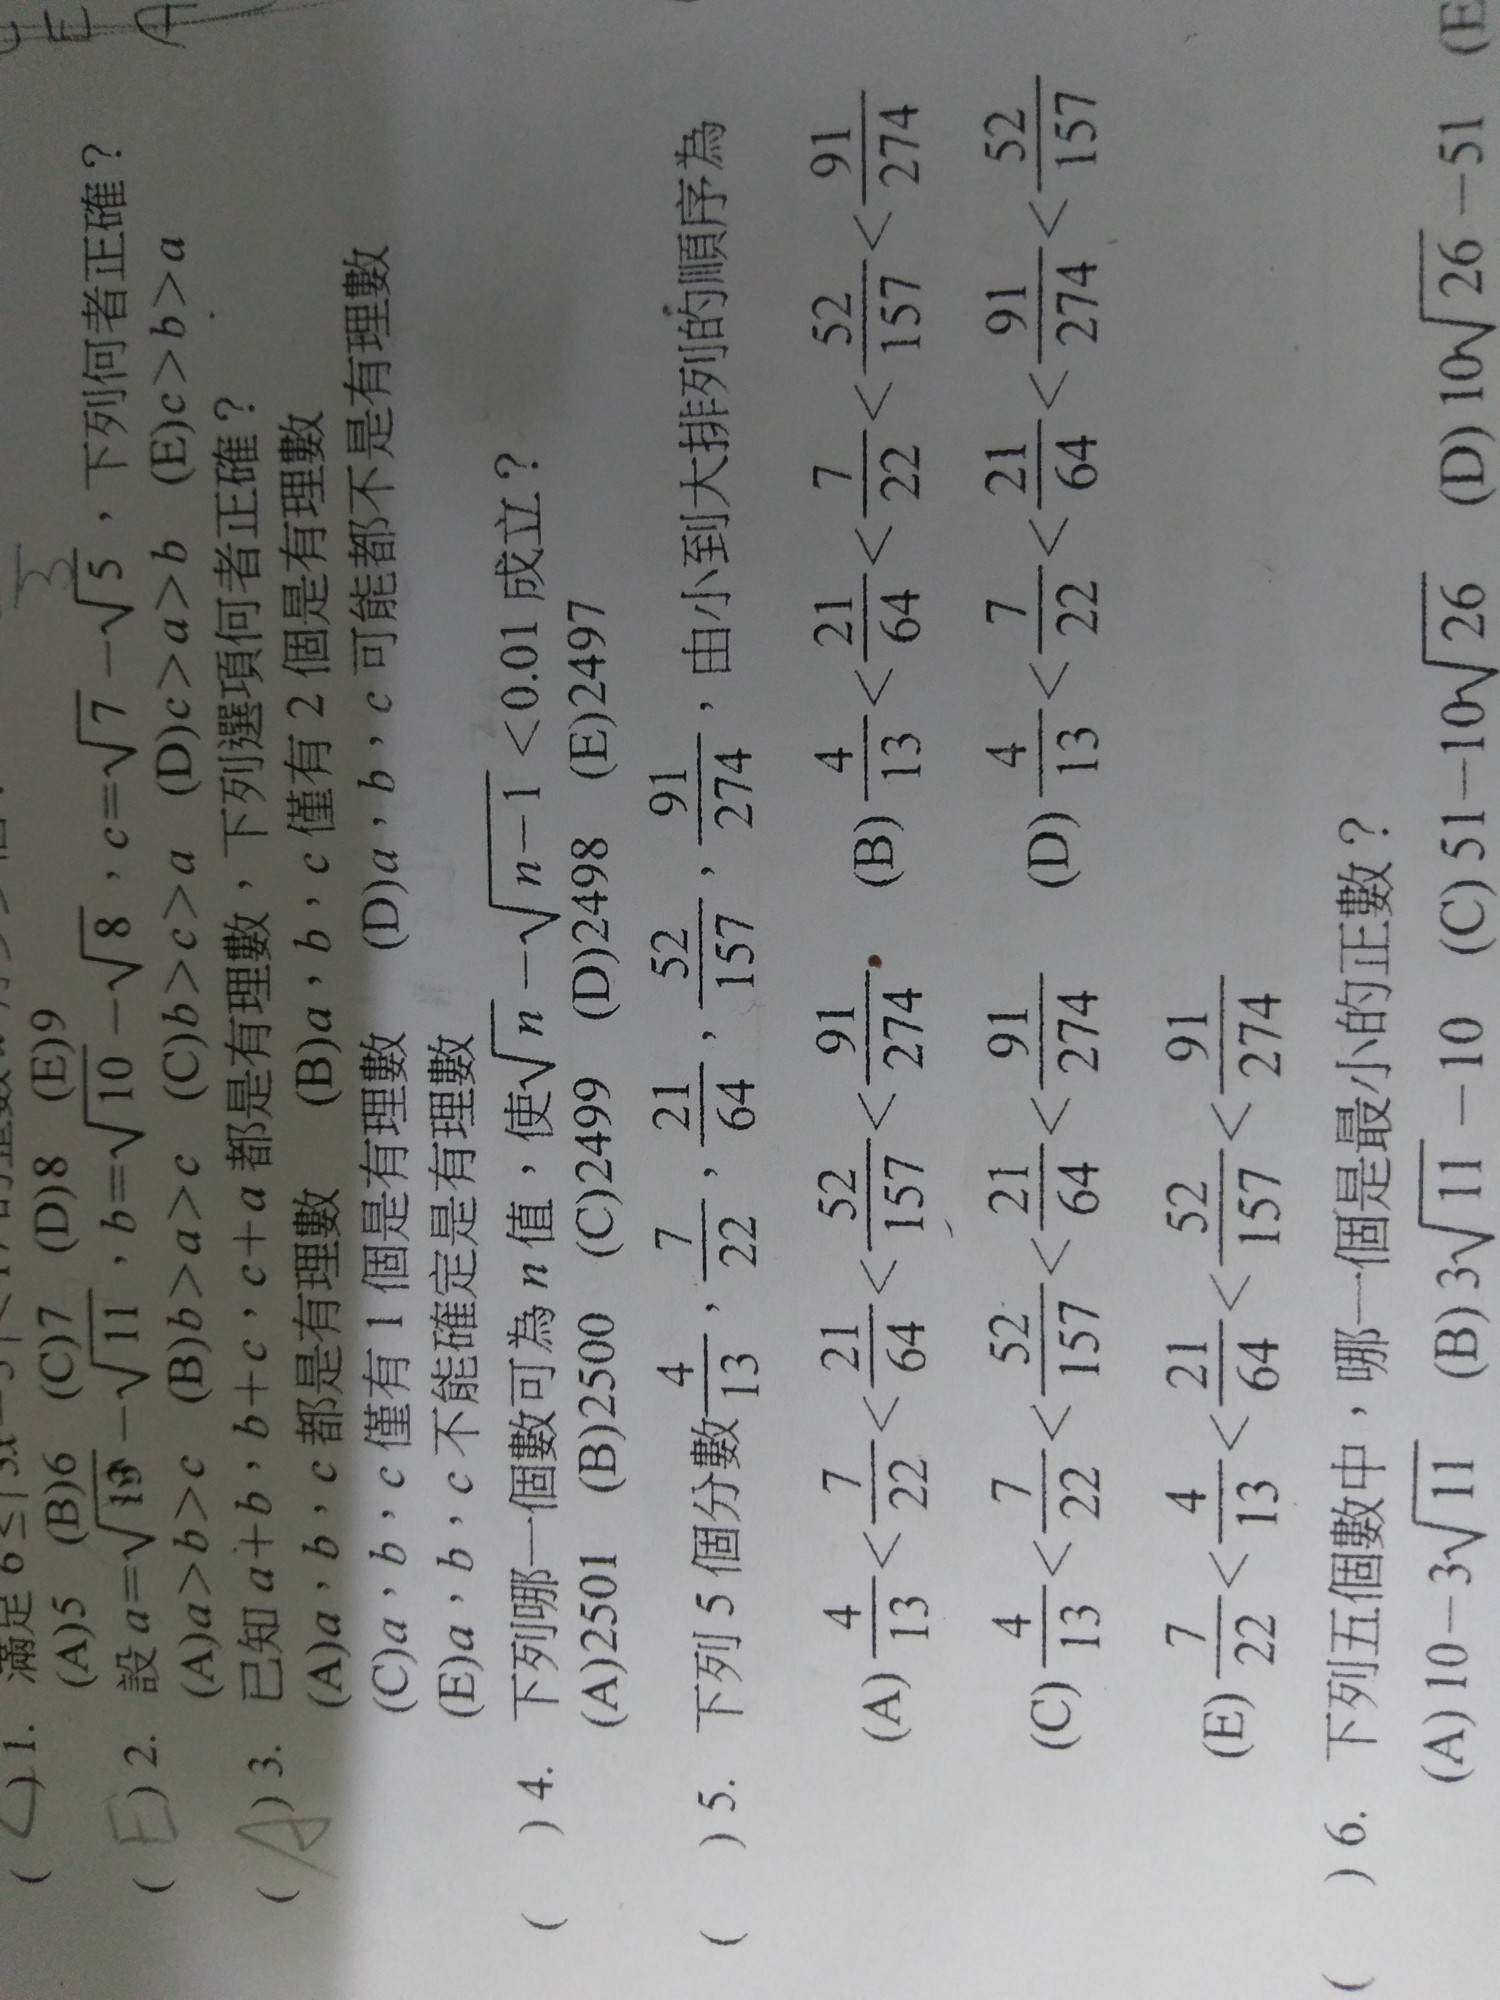 ( C ) 1. 滿足 6≤
(A)5 (B)6 (C)7 (D)8 (E)9
( E ) 2. 設 a=√13−√11，b=√10−√8，c=√7−√5，下列何者正確？
(A)a>b>c (B)b>a>c (C)b>c>a (D)c>a>b (E)c>b>a
( A ) 3. 已知 a+b，b+c，c+a 都是有理數，下列選項何者正確？
(A)a，b，c 都是有理數 (B)a，b，c 僅有 2 個是有理數
(C)a，b，c 僅有 1 個是有理數 (D)a，b，c 可能都不是有理數
(E)a，b，c 不能確定是有理數
( ) 4. 下列哪一個數可為 n 值，使√n−√(n−1)<0.01 成立？
(A)2501 (B)2500 (C)2499 (D)2498 (E)2497
( ) 5. 下列 5 個分數 4/13，7/22，21/64，52/157，91/274，由小到大排列的順序為
(A) 4/13<7/22<21/64<52/157<91/274 (B) 4/13<21/64<7/22<52/157<91/274
(C) 4/13<7/22<52/157<21/64<91/274 (D) 4/13<7/22<21/64<91/274<52/157
(E) 7/22<4/13<21/64<52/157<91/274
( ) 6. 下列五個數中，哪一個是最小的正數？
(A) 10−3√11 (B) 3√11−10 (C) 51−10√26 (D) 10√26−51 (E